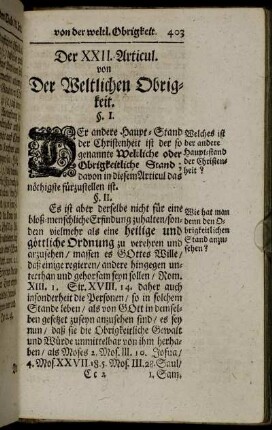 von der weltl. Obrigkeit. 403
Der XXII. Articul.
von
Der Weltlichen Obrig-
keit.
§. I.
DEr andere Haupt-Stand
der Christenheit ist der so
genannte Weltliche oder
Obrigkeitliche Stand;
davon in diesem Articul das
nöthigste fürzustellen ist.
Welches ist
der andere
Haupt-stand
der Christen-
heit?
§. II.
Es ist aber derselbe nicht für eine
bloß-menschliche Erfindung zu halten, son-
dern vielmehr als eine heilige und
göttliche Ordnung zu verehren und
anzusehen/ massen es GOttes Wille/
daß einige regieren/ andere hingegen un-
terthan und gehorsam seyn sollen/ Rom.
XIII. 1. Sir. XVIII. 14. daher auch
insonderheit die Personen/ so in solchem
Stande leben/ als von GOtt in demsel-
ben gesetzet zuseyn anzusehen sind/ es sey
nun/ daß sie die Obrigkeitliche Gewalt
und Würde unmittelbar von ihm herha-
ben/ als Moses 2. Mos. III. 10. Josua/
4. Mos. XXVII. 18. 5. Mos. III. 28. Saul/
Wie hat man
denn den O-
brigkeitlichen
Stand anzu-
sehen?
Cc 2 1. Sam.